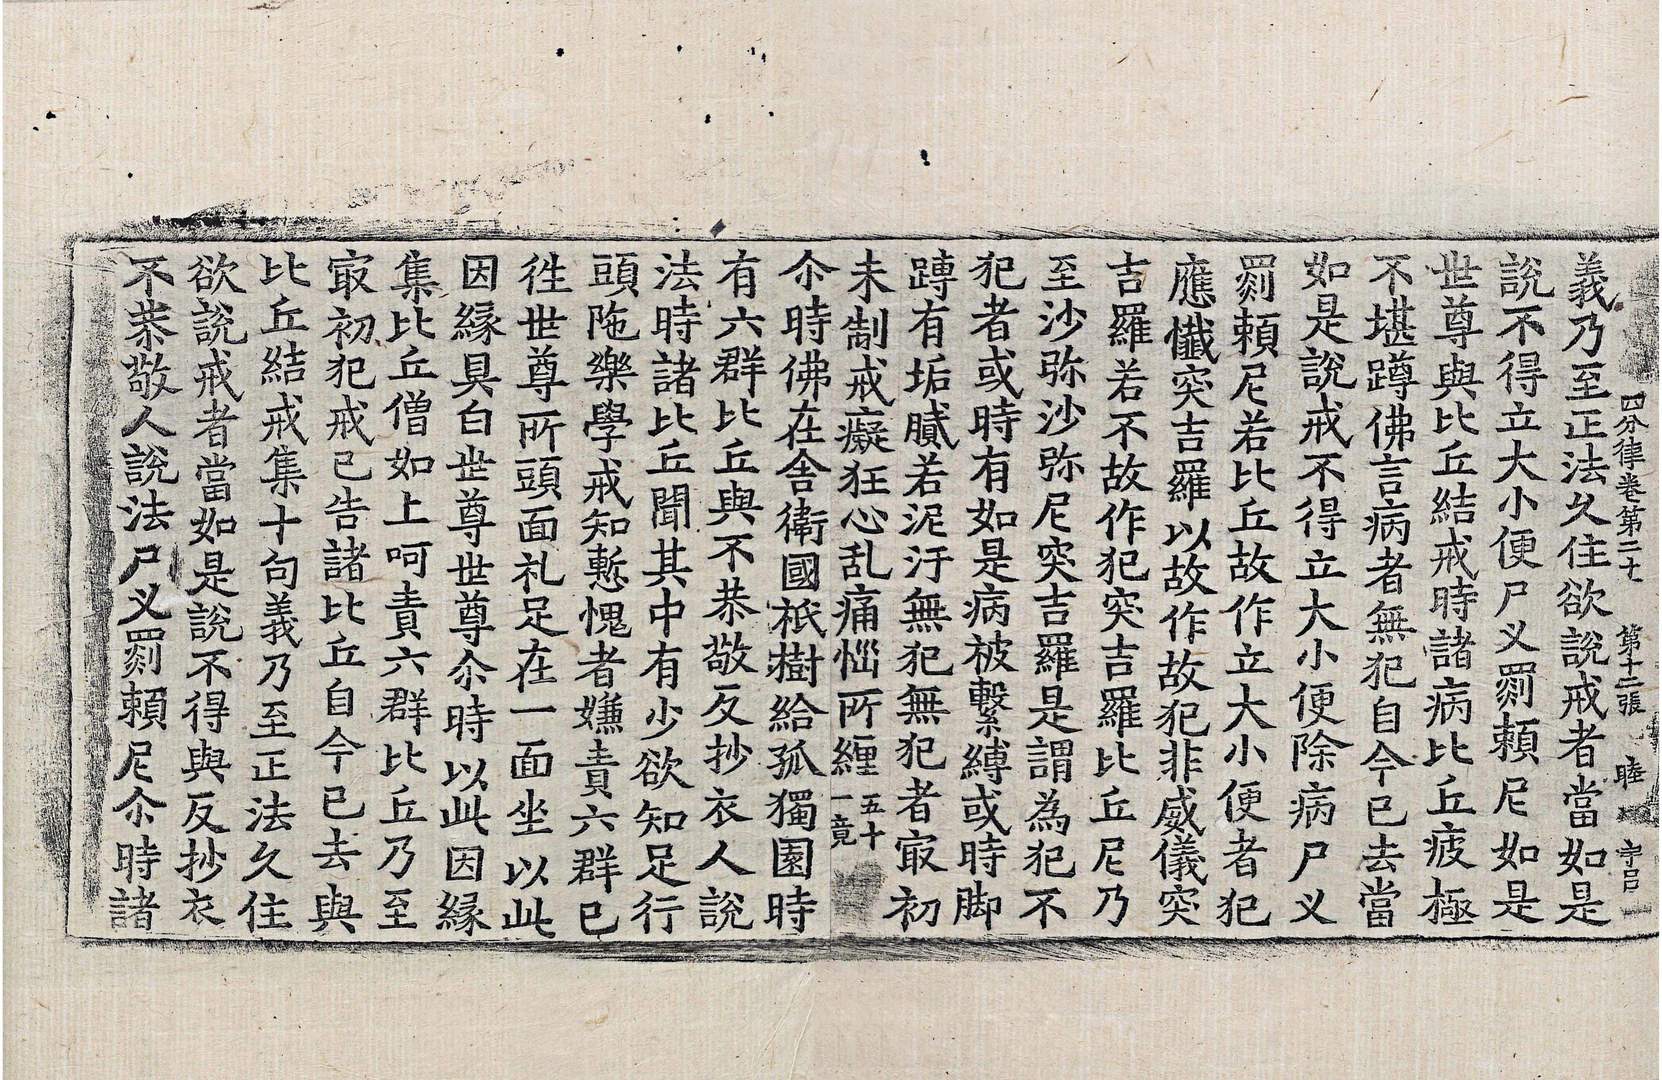 四分律卷第二十　第十二張　睦
義乃至正法久住欲說戒者當如是
說不得立大小便尸义罽頼尼如是
世尊與比丘結戒時諸病比丘疲極
不堪蹲佛言病者無犯自今已去當
如是說戒不得立大小便除病尸义
罽頼尼若比丘故作立大小便者犯
應懺突吉羅以故作故犯非威儀突
吉羅若不故作犯突吉羅比丘尼乃
至沙弥沙弥尼突吉羅是謂為犯不
犯者或時有如是病被繫縛或時脚
蹲有垢膩若泥汙無犯無犯者㝡初
未制戒癡狂心乱痛惱所纏五十一竟
尒時佛在舍衞國祇樹給孤獨園時
有六群比丘與不恭敬反抄衣人說
法時諸比丘聞其中有少欲知足行
頭陁樂學戒知慙愧者嫌責六群已
徃世尊所頭面礼足在一面坐以此
因緣具白世尊世尊尒時以此因緣
集比丘僧如上呵責六群比丘乃至
㝡初犯戒已告諸比丘自今已去與
比丘結戒集十句義乃至正法久住
欲說戒者當如是說不得與反抄衣
不恭敬人說法尸义罽頼尼尒時諸